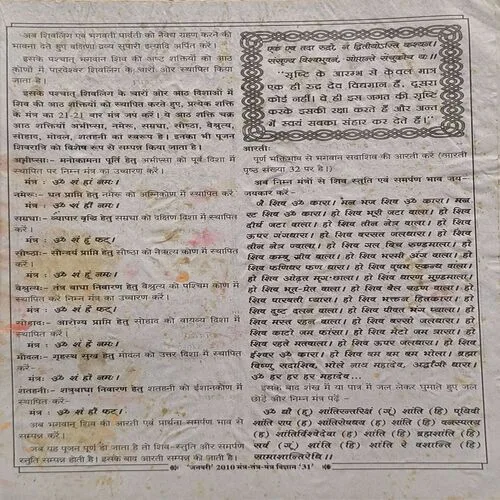 अब शिवलिंग एवं भगवती पार्वती को नैवेद्य ग्रहण करने की
भावना देते हुए दक्षिणा द्रव्य सुपारी इत्यादि अर्पित करें।
इसके पश्चात् भगवान शिव की अष्ट शक्तियों को आठ
कोणों में पारदेश्वर शिवलिंग के चारों ओर स्थापित किया
जाता है।
इसके पश्चात् शिवलिंग के चारों ओर आठ दिशाओं में
शिव की आठ शक्तियों को स्थापित करते हुए, प्रत्येक शक्ति
के मंत्र का 21-21 बार मंत्र जप करें। ये आठ शक्ति चक्र
आठ शक्तियों अभीप्सा, नमेरू, समघा, सौष्ठा, वैश्रुत्य,
सोहाद, मोवल, शतहती का स्वरूप है। इनका भी पूजन
शिवरात्रि को विशेष रूप से सम्पन्न किया जाता है।
अभीप्सा:- मनोकामना पूर्ति हेतु अभीप्सा को पूर्व दिशा में
स्थापित कर निम्न मंत्र का उच्चारण करें।
मंत्र : ॐ शं हीं नमः।
नमेरू:- धन प्राप्ति हेतु नमेरू को अग्निकोण में स्थापित करें।
मंत्र : ॐ शं हीं नमः।
समघा:- व्यापार वृद्धि हेतु समघा को दक्षिण दिशा में स्थापित
करें।
मंत्र : ॐ शं हुं फट्।
सौष्ठा:- सौन्दर्य प्राप्ति हेतु सौष्ठा को नैऋत्य कोण में स्थापित
करें।
मंत्र : ॐ शं हूं नमः।
वैश्रुत्य:- तंत्र बाधा निवारण हेतु वैश्रुत्य को पश्चिम कोण में
स्थापित करें निम्न मंत्र का उच्चारण करें।
मंत्र : ॐ शं हीं नमः।
सोहाद:- आरोग्य प्राप्ति हेतु सोहाद को वायव्य दिशा में
स्थापित करें।
मंत्र : ॐ शं हीं फट्।
मोवल:- गृहस्थ सुख हेतु मोवल को उत्तर दिशा में स्थापित
करें।
मंत्र : ॐ शं हीं नमः।
शतहती:- शत्रुबाधा निवारण हेतु शतहती को ईशानकोण में
स्थापित करें।
मंत्र : ॐ शं हीं फट्।
अब भगवान शिव की आरती एवं प्रार्थना समर्पण भाव से
सम्पन्न करें।
जब यह पूजन पूर्ण हो जाता है तो शिव-स्तुति और समर्पण
स्तुति सम्पन्न होती है। इसके बाद आरती सम्पन्न की जाती है।
एक एव तदा रुद्रो, न द्वितीयोऽस्ति कश्चन।
संसृज्य विश्वभुवन,
"सृष्टि के आरम्भ से केवल मात्र
एक ही रूद्र देव विद्यमान हैं, दूसरा
कोई नहीं। वे ही इस जगत की सृष्टि
करके इसकी रक्षा करते हैं और अन्त
में स्वयं सबका संहार कर देते हैं।"
आरती:
पूर्ण भक्तिभाव से भगवान सदाशिव की आरती करें (आरती
पृष्ठ संख्या 32 पर है।)
अब निम्न मंत्रों से शिव स्तुति एवं समर्पण भाव जय-
जयकार करें-
जै शिव ॐ कारा। मन भज शिव ॐ कारा। मन
रट शिव ॐ कारा। हो शिव भूरी जटा वाला। हो शिव
दीर्घ जटा वाला। हो शिव तीन नेत्र वाला। हो शिव
ऊपर गंगधारा। हो शिव बरसत जलधारा। हो शिव
तीन नेत्र ज्वाला। हो शिव गल बिच रुण्डमाला। हो
शिव कम्बु ग्रीव वाला। हो शिव भस्मी अंग वाला। हो
शिव फणिधर फण धारा। हो शिव वृषभ स्कन्ध वाला।
हो शिव ओढ़त मृग-छाला। हो शिव धारण मुण्डमाला।
हो शिव भूत-प्रेत वाला। हो शिव बैल चढ़ण वाला। हो
शिव पारबती प्यारा। हो शिव भक्तन हितकारा। हो
शिव दुष्ट दलन वाला। हो शिव पीवत भंग प्याला। हो
शिव मस्त रहन वाला। हो शिव बरसो जलधारा। हो
शिव काटो जम फांसा। हो शिव मेटो जम त्रासा। हो
शिव रहते मतवाला। हो शिव ऊपर जलधारा। हो शिव
ईश्वर ॐ कारा। हो शिव बम बम बम भोला। ब्रह्मा
विष्णु सदाशिव, भोले नाथ महादेव, अर्द्धांगी धारा।
ॐ हर हर हर महादेव...
इसके बाद शंख में या पात्र में जल लेकर घुमाते हुए जल
छोड़ें और निम्न मंत्र पढ़ें -
ॐ द्यौ (हः) शांतिरन्तरिक्षं (गं) शांति (हिः) पृथिवी
शांति राप शांतिरोषधय (हः) शांति (हिः) वनस्पतय
(हः) शांतिर्विश्वेदेवा (हः) शांति (हिः) ब्रह्मशांति (हिः)
सर्व (गं) शांति (हिः) शांति रे वशान्ति (हिः)
सामाशान्तिरेधि।।
'जनवरी' 2010 मंत्र-तंत्र-यंत्र विज्ञान '31'